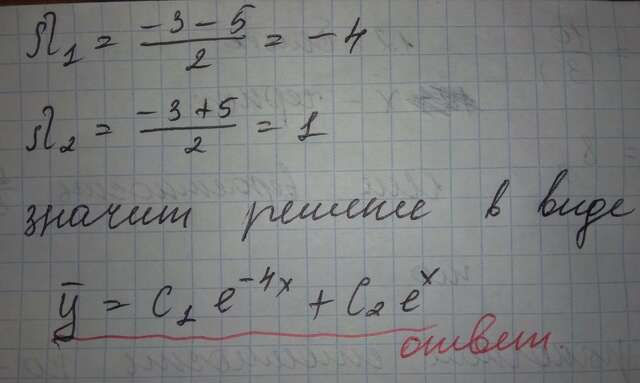 λ₁ = (-3 - 5)/2 = -4
λ₂ = (-3 + 5)/2 = 1
значит решение в виде
ȳ = C₁ e^(-4x) + C₂ e^x
ответ.